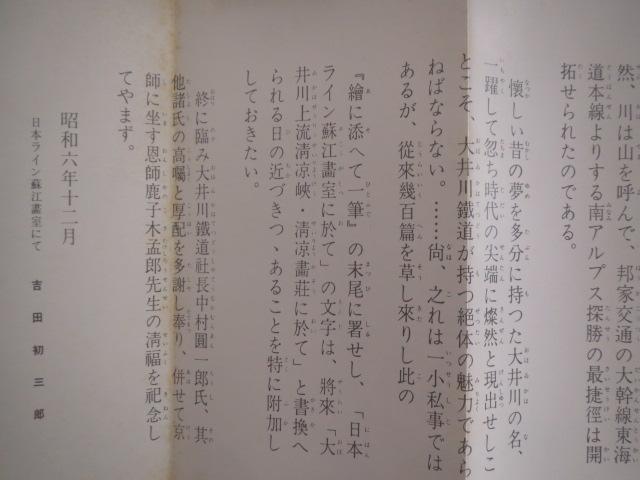 然、川は山を呼んで、邦家交通の大幹線東海
道本線よりする南アルプス探勝の最捷徑は開
拓せられたのである。
懷しい昔の夢を多分に持つた大井川の名、
一躍して忽ち時代の尖端に燦然と現出せしこ
とこそ、大井川鐵道が持つ絕体の魅力であら
ねばならない。……尙、之れは一小私事では
あるが、從來幾百篇を草し來りし此の
『繪に添へて一筆』の末尾に署せし、「日本
ライン蘇江畫室に於て」の文字は、將來「大
井川上流淸凉峽・淸凉畵莊に於て」と書換へ
られる日の近づきつゝあることを特に附加し
しておきたい。
終に臨み大井川鐵道社長中村圓一郎氏、其
他諸氏の高囑と厚配を多謝し奉り、併せて京
師に坐す恩師鹿子木孟郎先生の淸福を祀念し
てやまず。
昭和六年十二月
日本ライン蘇江畫室にて
吉田初三郎